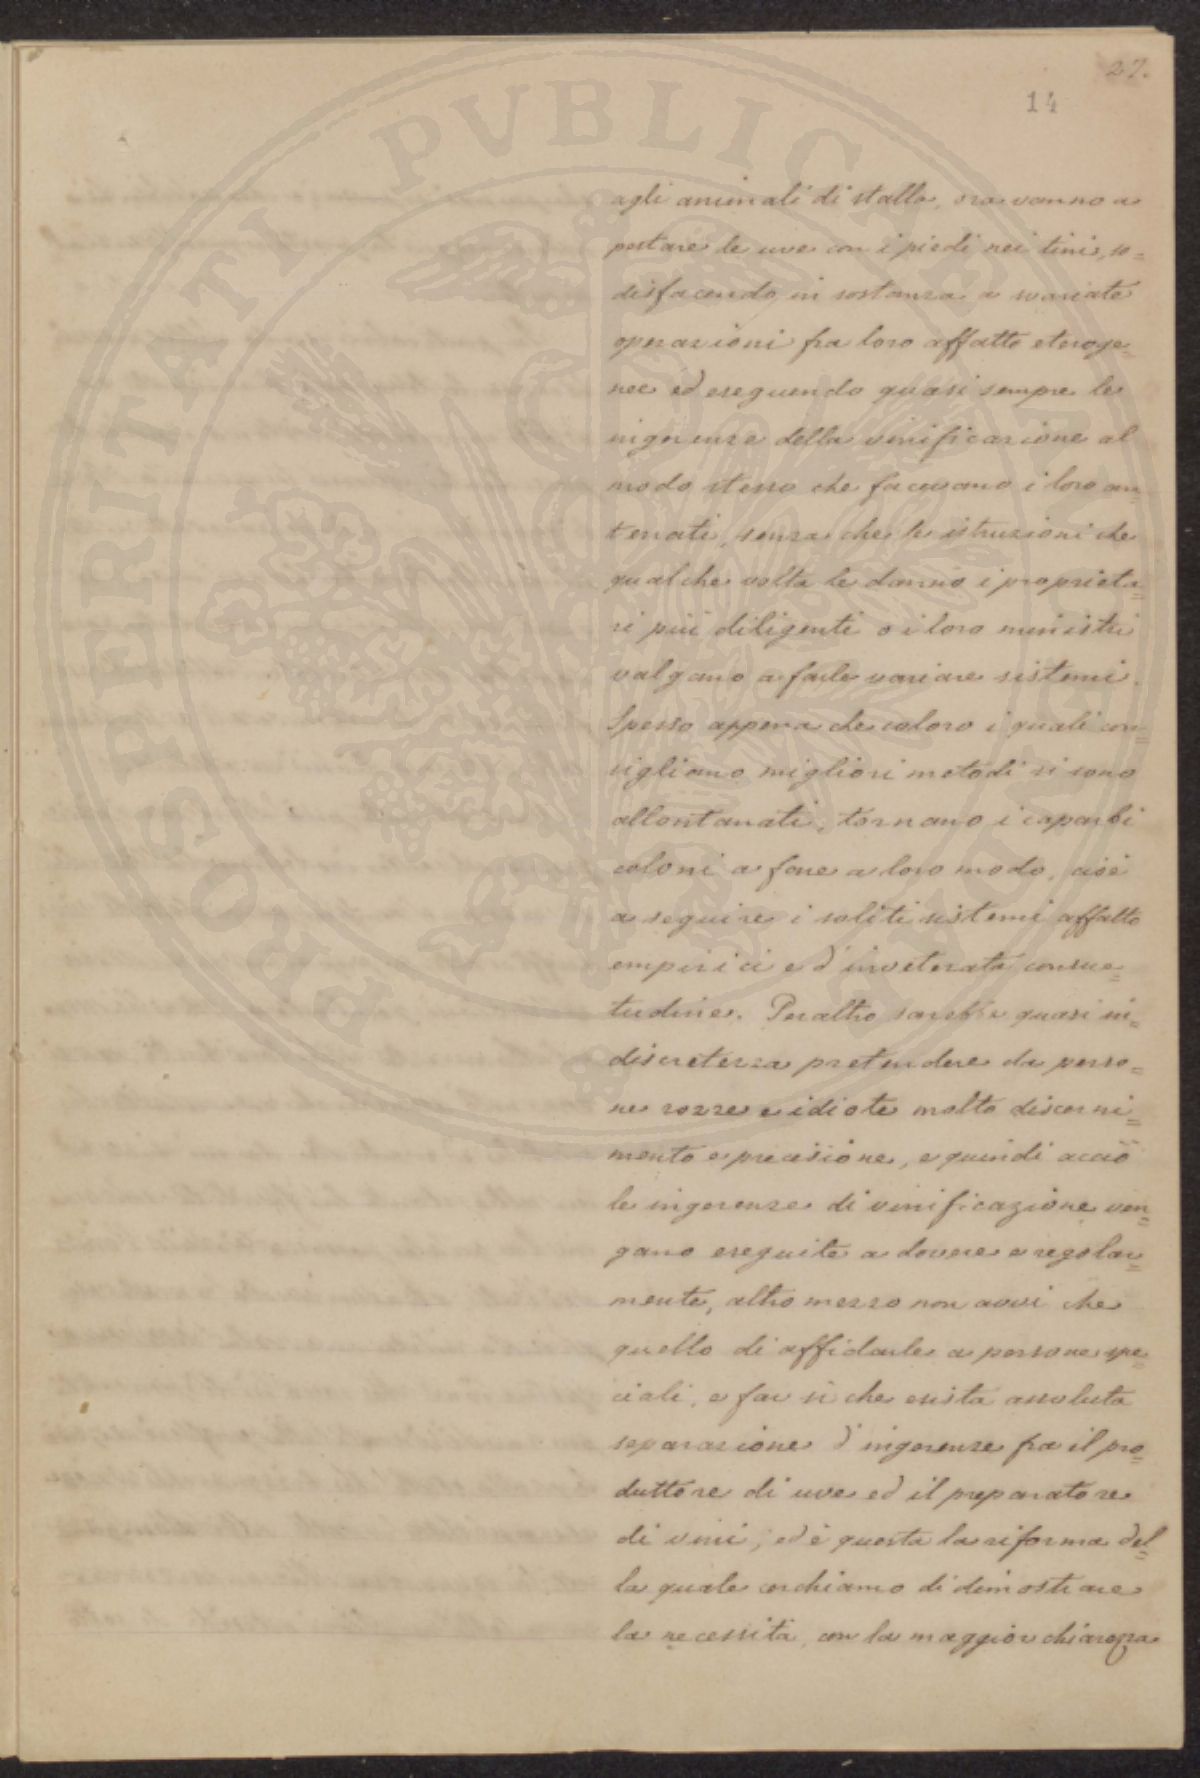 27.
14
PROSPERITATI PVBLICAE AVGENDAE
agli animali di stalla, ora vanno a
pestare le uve con i piedi nei tini, so=
disfacendo in sostanza a svariate
operazioni fra loro affatto eteroge=
nee ed eseguendo quasi sempre le
ingerenze della vinificazione al
modo stesso che facevano i loro an=
tenati, senza che le istruzioni che
qualche volta le danno i proprieta=
ri più diligenti o i loro ministri
valgano a farle variare sistemi.
Spesso appena che coloro i quali con=
sigliano migliori metodi si sono
allontanati, tornano i caparbi
coloni a fare a loro modo, cioè
a seguire i soliti sistemi affatto
empirici e d'inveterata consue=
tudine. Peraltro sarebbe quasi in=
discretezza pretendere da perso=
ne rozze e idiote molto discerni=
mento e precisione, e quindi acciò
le ingerenze di vinificazione ven=
gano eseguite a dovere e regolar=
mente, altro mezzo non avvi che
quello di affidarle a persone spe=
ciali, e far sì che esista assoluta
separazione d'ingerenze fra il pro=
duttore di uve ed il preparatore
di vini; ed è questa la riforma del=
la quale cerchiamo di dimostrare
la necessità, con la maggior chiarezza